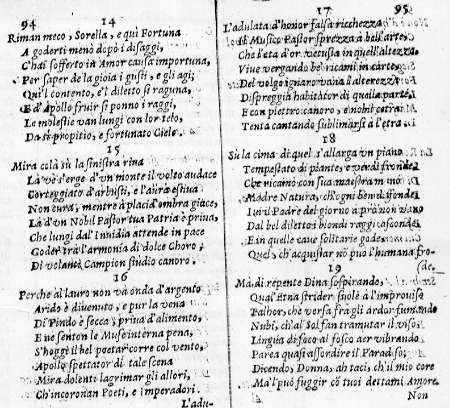 94
14
Riman meco, Sorella, e qui Fortuna
A goderti menò dopò i disaggi,
C'hai sofferto in Amor causa importuna,
Per saper de la gioia i gusti, e gli agi;
Qui'l contento, e'l diletto si raguna,
E d'Apollo fruir si ponno i raggi,
Le molestie van lungi con lor telo,
Da si propitio, e fortunato Cielo.
15
Mira colà sù la sinistra riua
Là ve s'erge d'un monte il volto audace
Corteggiato d'arbusti, e l'aura estiua
Non cura, mentre à placid'ombra giace,
Là d'un Nobil Pastor tua Patria è priua,
Che lungi dal l'inuidia attende in pace
Goder trà l'armonia di dolce Choro,
Di volanti Campion studio canoro.
16
Perche al lauro non và onda d'argento
Arido è divenuto, e pur la vena
Di Pindo è secca, priua d'alimento,
E ne senton le Muse interna pena,
S'hoggi il bel poetar corre col vento,
Apollo spettator di tale scena
Mira dolenti lagrimar gli allori,
Ch'incoronan Poeti, e imperadori.
L'adu-
95
17
L'adulata d'honor falsa ricchezza
Il Musico Pastor sprezza à bell'arte,
Che l'età d'or vetusta in quell'altezza
Viue vergando bei ricami in carte,
Del volgo ignaro vana l'alterezza
Dispreggia habitator di quella parte,
E con plettro canoro, e nobil cetra
Tenta cantando sublimarsi à l'etra.
18
Sù la cima di quel s'allarga un piano
Tempestato di piante, e verdi fronde
Che ricamò con sua maestra mano
Madre Natura, ch'ogni ben difonde
Iui il Padre del giorno à prò non vano
Dal bel dilettos biondi raggi asconde
E in quelle caue solitarie gode
Quel, ch'acquistar nò può l'humana fro-
de.
19
Mà di repente Dina sospirando,
Qual Etna strider suole à l'improuiso
Talhor, che versa frà gli ardor fumando
Nubi, ch'al Sol fan tramutar il viso,
Lingua di foco al fosco aer vibrando
Parea quasi assordire il Paradiso;
Dicendo, Donna, ah taci, ch'il mio core
Ma'l può fuggir cõ tuoi dettami Amore.
Non